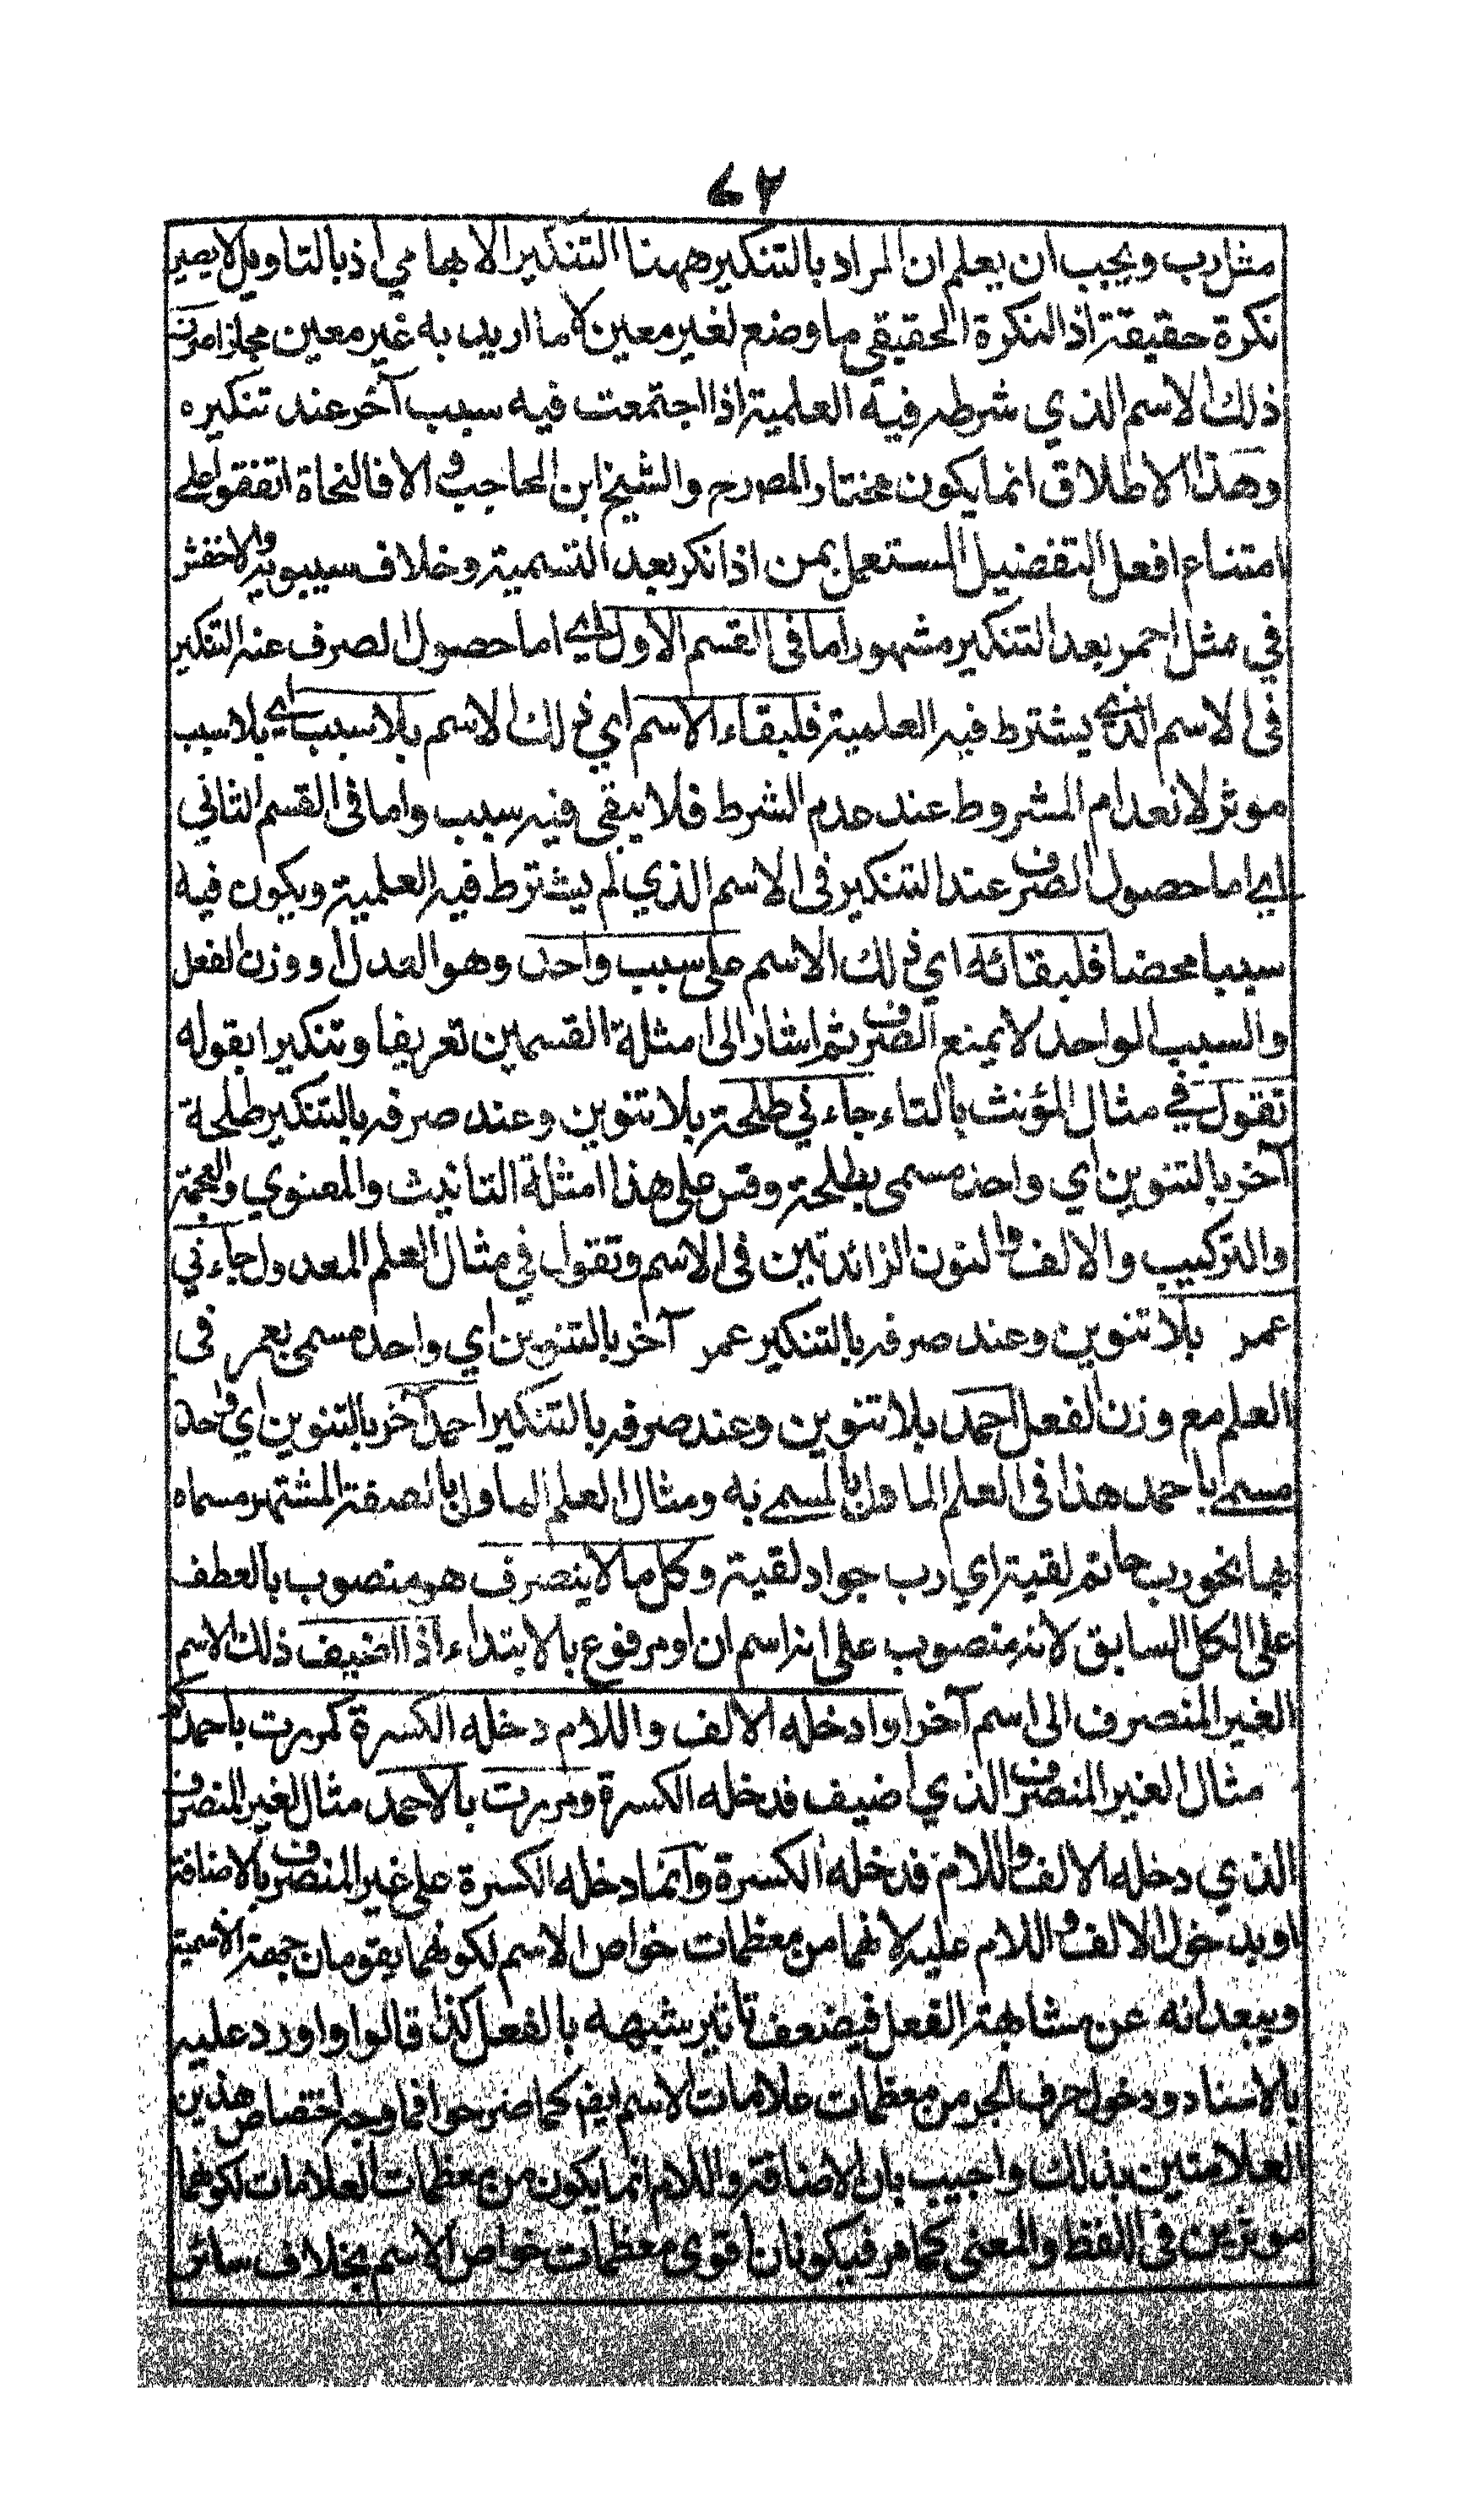 ٤٢
مثل رب ويجب ان يعلم ان المراد بالتنكير ههنا التنكير الابهامي اذ بالتاويل لا يصير
نكرة حقيقة اذ النكرة الحقيقي ما وضع لغير معين لا ما اريد به غير معين مجازا صرف
ذلك الاسم الذي شرطه فيه العلمية اذا اجتمعت فيه سبب آخر عند تنكيره
وهذا الاطلاق انما يكون مختار المصرح والشيخ ابن الحاجب والا فالنحاة اتفقوا على
امتناع افعل التفضيل المستعمل بمن اذا نكر بعد التسمية وخلاف سيبويه والاخفش
في مثل احمر بعد التنكير مشهور اما فى القسم الاول اي اما حصول الصرف عند التنكير
فى الاسم الذي يشترط فيه العلمية فلبقاء الاسم اي ذلك الاسم بلا سبب اي بلا سبب
موثر لانعدام المشروط عند عدم الشرط فلا يبقى فيه سبب واما فى القسم الثاني
اي اما حصول الصرف عند التنكير فى الاسم الذي لم يشترط فيه العلمية ويكون فيه
سببا محضا فلبقائه اي ذلك الاسم على سبب واحد وهو العدل او وزن الفعل
والسبب الواحد لا يمنع الصرف ثم اشار الى امثلة القسمين تعريفا وتنكيرا بقوله
تقول في مثال المؤنث بالتاء جاءني طلحة بلا تنوين وعند صرفه بالتنكير طلحة
آخر بالتنوين اي واحد مسمى بطلحة وقس على هذا امثلة التانيث والمعنوي والعجمة
والتركيب والالف والنون الزائدتين فى الاسم وتقول في مثال العلم المعدول جاءني
عمر بلا تنوين وعند صرفه بالتنكير عمر آخر بالتنوين اي واحد مسمى بعمر في
العلم مع وزن الفعل احمد بلا تنوين وعند صرفه بالتنكير احمد آخر بالتنوين اي واحد
مسمى باحمد هذا فى العلم الماول بالمسمى به ومثال العلم الماول بالصفة المشتهر مسماه
بها نحو رب حاتم لقيته اي رب جواد لقيته وكل ما لا ينصرف هو منصوب بالعطف
على الكل السابق لانه منصوب على انه اسم ان او مرفوع بالابتداء اذا اضيف ذلك الاسم
الغير المنصرف الى اسم آخر او ادخله الالف واللام دخله الكسرة كمررت باحمدكم
مثال الغير المنصرف الذي اضيف فدخله الكسرة ومررت بالاحمد مثال الغير المنصرف
الذي دخله الالف واللام فدخله الكسرة وانما دخله الكسرة على غير المنصرف بالاضافة
او بدخول الالف واللام عليه لانهما من معظمات خواص الاسم لكونهما يقومان جهة الاسمية
ويبعدانه عن مشابهة الفعل فيضعف تاثير شبهه بالفعل كذا قالوا واورد عليه
بالاسناد ودخول حرف الجر من معظمات علامات الاسم ايضا كما صرحوا فما وجه اختصاص هذين
العلامتين بذلك واجيب بان الاضافة واللام انما يكون من معظمات العلامات لكونهما
موثرين فى اللفظ والمعنى كما مر فيكونان اقوى معظمات خواص الاسم بخلاف سائر